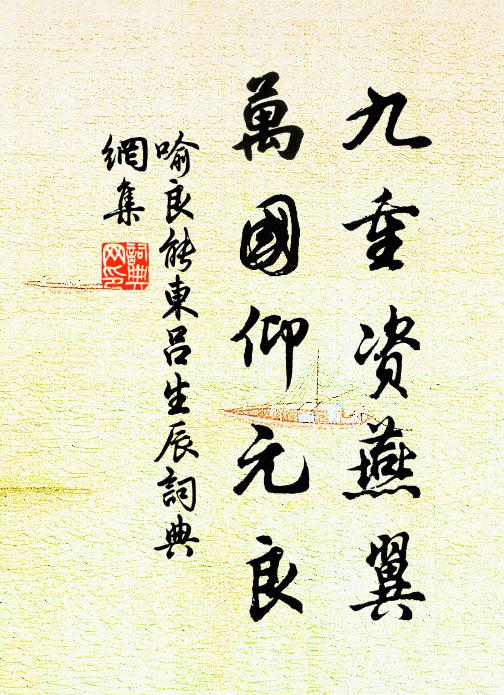 九重資燕翼
萬國仰元良
喻良能東呂生辰詞典
網集
詞典
网印